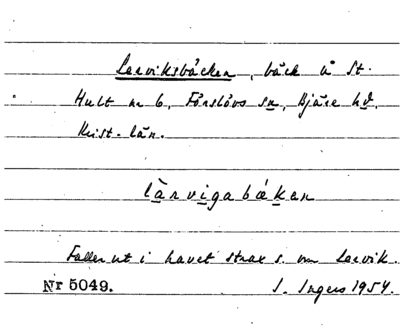 Lerviksbäcken, bäck å St.
Hult nr 6, Förslövs sn, Bjäre hd.
Krist. län.
làrvigabækan
Faller ut i havet strax s. om Lervik.
Nr 5049. I. Ingers 1954.